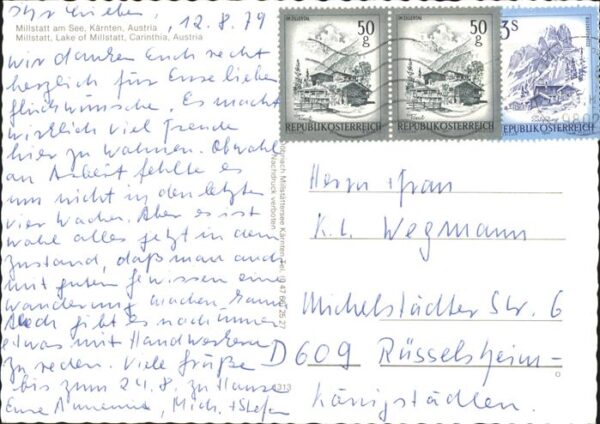 Ihr Lieben, 12.8.79
Millstatt am See, Kärnten, Austria
Millstatt, Lake of Millstatt, Carinthia, Austria
wir danken Euch recht
herzlich für Eure lieben
Glückwünsche. Es macht
wirklich viel Freude
hier zu wohnen. Obwohl
an Arbeit fehlte es
uns nicht in den letzten
vier Wochen. Aber es ist
wohl alles jetzt in dem
Zustand, daß man auch
mit gutem Gewissen eine
Wanderung machen kann.
Doch gibt es noch immer
etwas mit Handwerkern
zu reden. Viele Grüße
bis zum 24.8. zu Hause
Eure Mich. + Stefan
IM ZILLERTAL
50 g
REPUBLIK ÖSTERREICH
50 g
REPUBLIK ÖSTERREICH
3 S
REPUBLIK ÖSTERREICH
9802
Millstättersee Kärnten
Nachdruck verboten
Herrn + Frau
K. L. Wegmann
Michelstädter Str. 6
D 609 Rüsselsheim-
Königstädten.